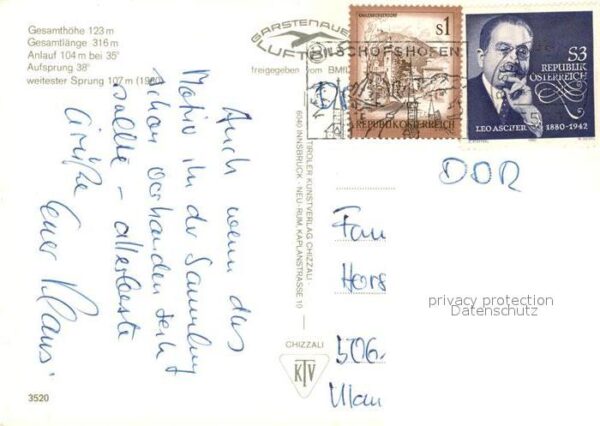 Gesamthöhe 123 m
Gesamtlänge 316 m
Anlauf 104 m bei 35°
Aufsprung 38°
weitester Sprung 107 m
GARSTENAUER
LUFT
BISCHOFSHOFEN
freigegeben vom BMfLV
s1
REPUBLIK ÖSTERREICH
S3
REPUBLIK
ÖSTERREICH
LEO ASCHER 1880-1942
Auch wenn das
Motiv in der Sammlung
schon vorhanden sein
sollte – allerbeste
Grüße
Euer Klaus
TIROLER KUNSTVERLAG CHIZZALI
6040 INNSBRUCK - NEU-RUM, KAPLANSTRASSE 10
CHIZZALI
KTV
DDR
Fam
Hors
506
privacy protection
Datenschutz
3520